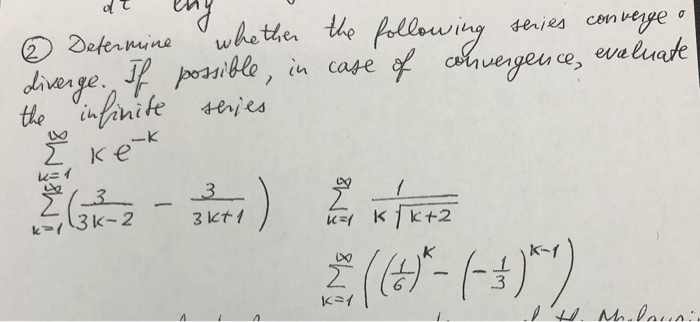 ② Determine whether the following series converge o
diverge. If possible, in case of convergence, evaluate
the infinite series
∑_{k=1}^{∞} k e^{-k}
∑_{k=1}^{∞} (3/(3k-2) - 3/(3k+1))
∑_{k=1}^{∞} 1/(k√(k+2))
∑_{k=1}^{∞} ((1/6)^k - (-1/3)^{k-1})